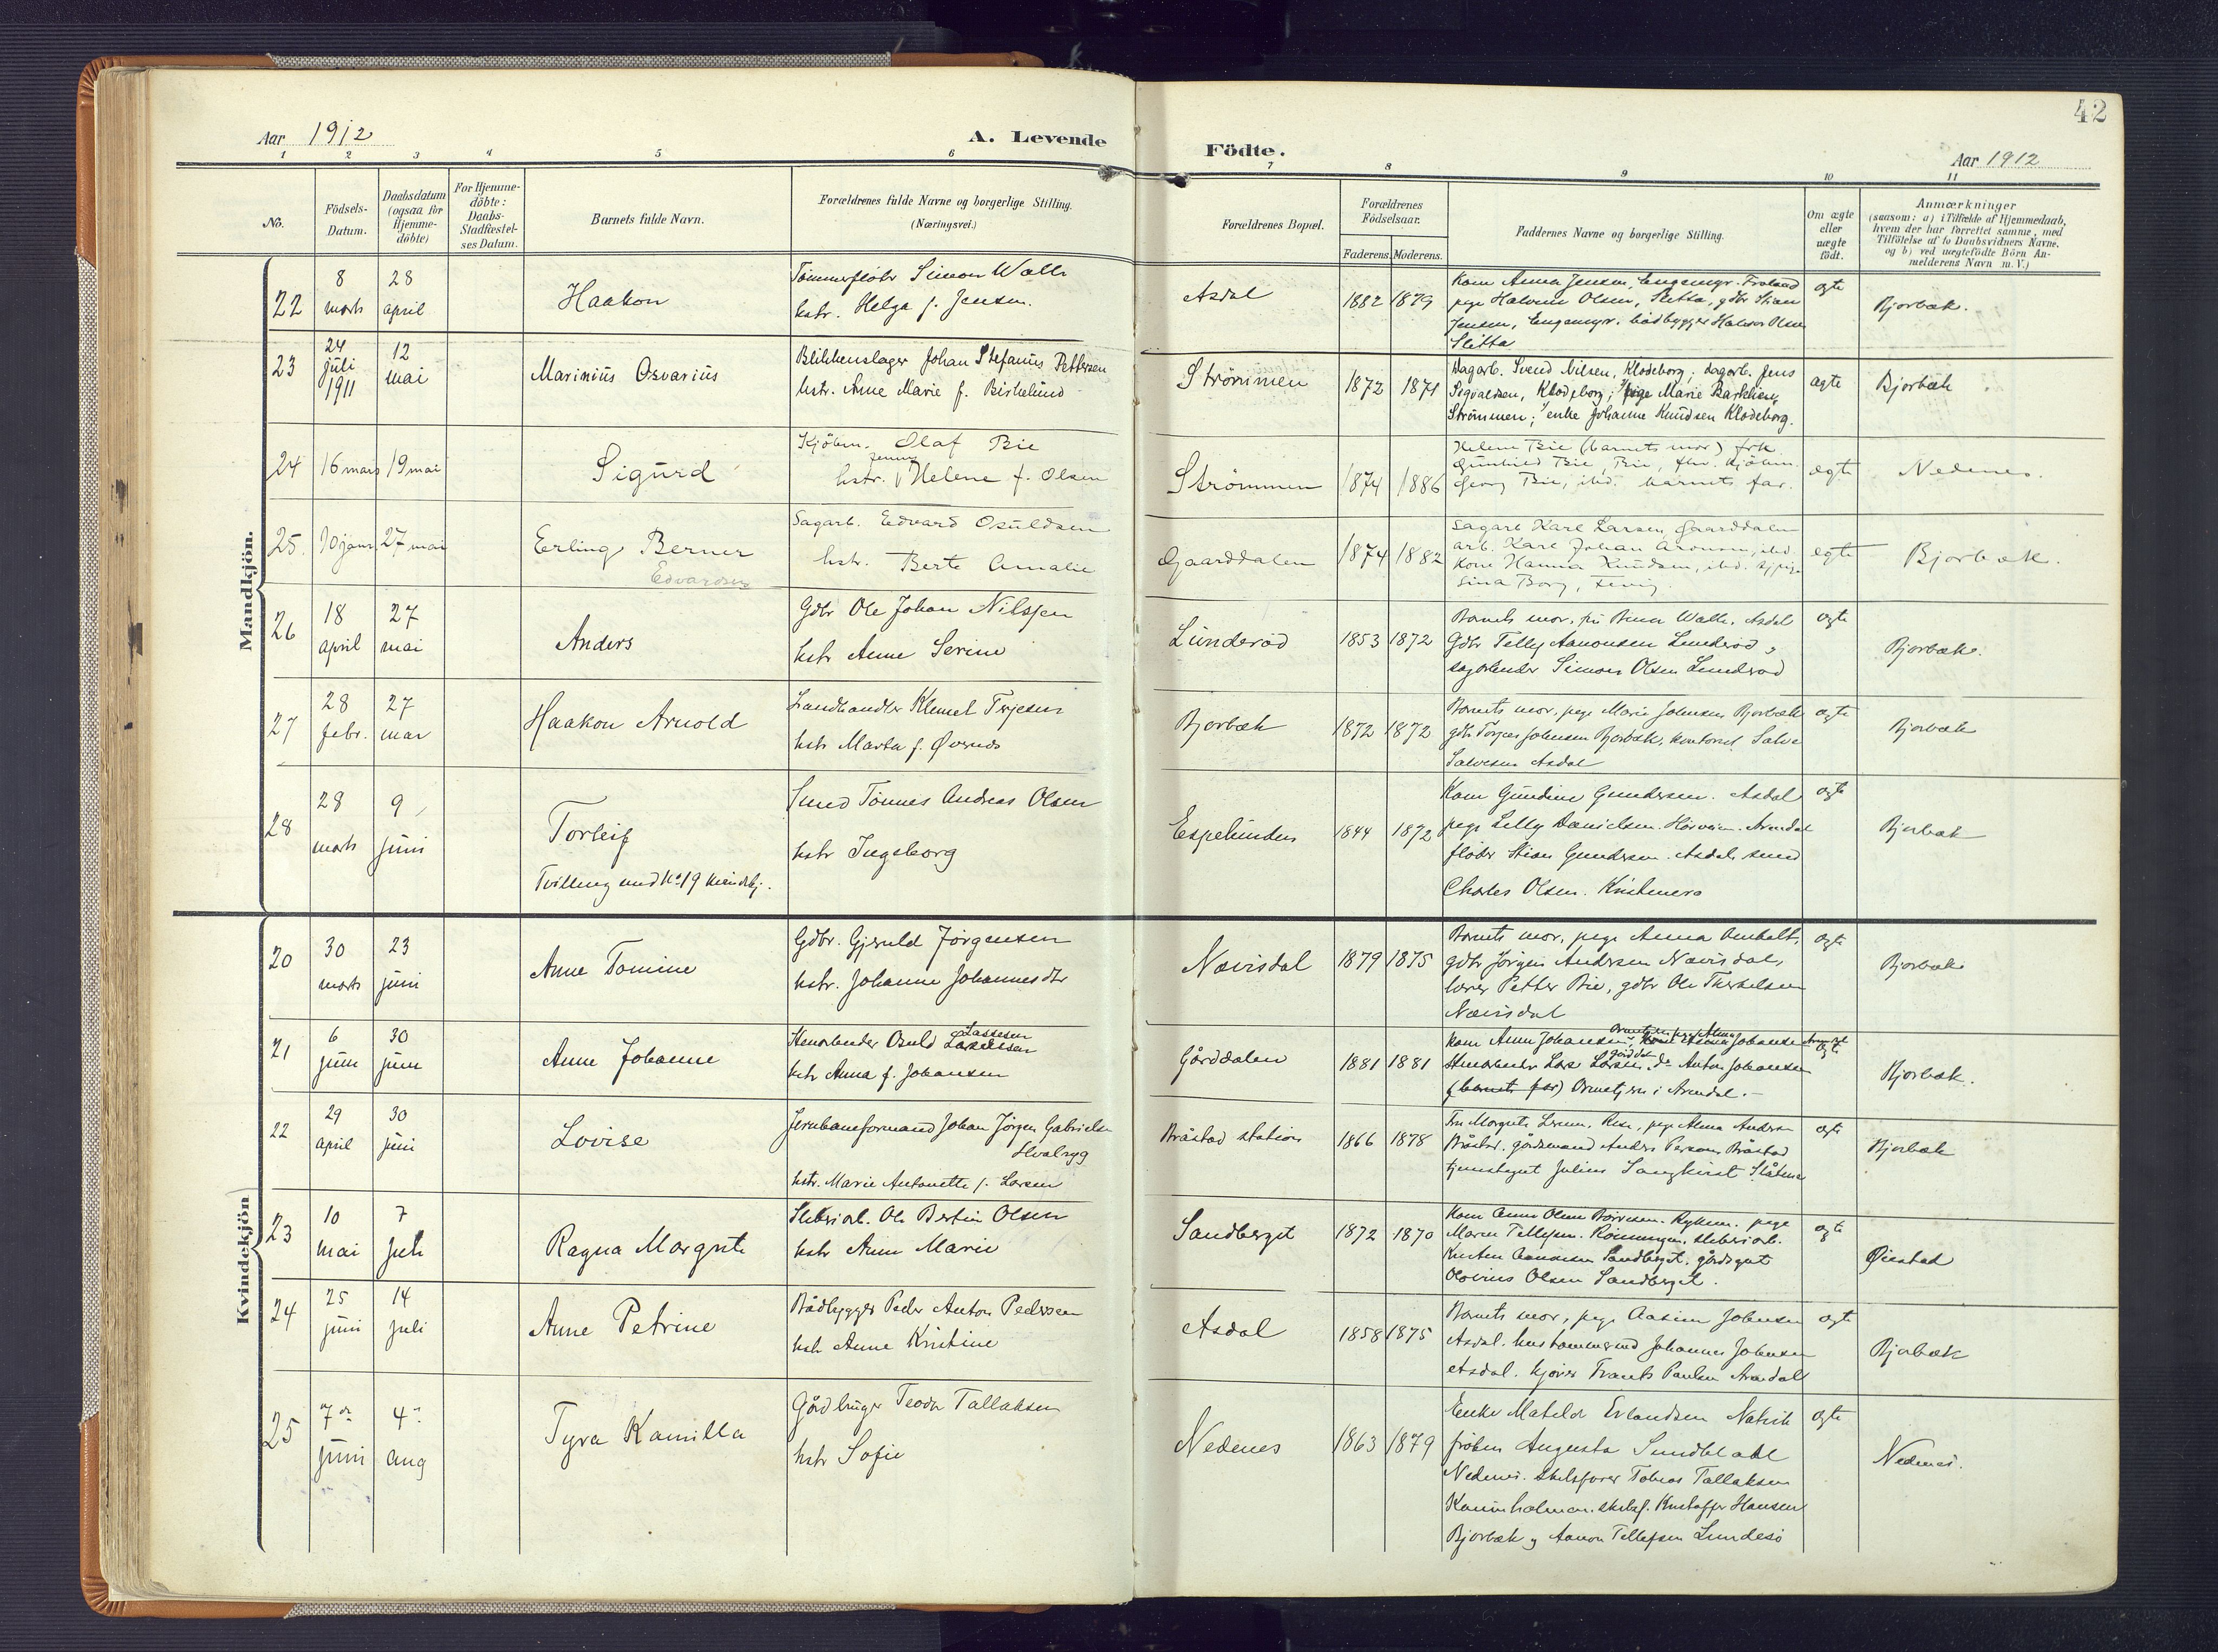 42
Aar 1912
A. Levende
Födte.
Aar 1912
1 2 3 4 5 6 7 8 9 10 11
No.
Födsels-
Datum.
Daabsdatum
(ogsaa for
Hjemme-
döbte)
For Hjemme-
döbte:
Daabs-
Stadfæstel-
ses Datum.
Barnets fulde Navn.
Forældrenes fulde Navne og borgerlige Stilling.
(Næringsvei.)
Forældrenes Bopæl.
Forældrenes
Födselsaar.
Faderens. Moderens.
Faddernes Navne og borgerlige Stilling.
Om ægte
eller
uægte
födt.
Anmærkninger
(saasom: a) i Tilfælde af Hjemmedaab,
hvem der har forrettet samme, med
Tilföielse af to Daabsvidners Navne,
og b) ved uægtefödte Börn An-
melderens Navn m. V.)
Mandkjön.
22
8
marts
28
april
Haakon
Tömmerfløter Simon Walle
hstr. Helga f. Jensen.
Asdal
1882 1879
Kone Anna Jensen, Engemyr. Froland
pige Halvine Olsen, Sletta, gdbr Stian
Jensen, Engemyr. bådbygger Halvor Olsen
Sletta
ægte
Bjorbæk.
23
24
juli
1911
12
mai
Marinius Osvarius
Blikkenslager Johan Stefanus Pettersen
hstr. Anne Marie f. Birkelund
Strömmen
1872 1871
Dagarb. Svend Nilsen, Klodeborg; dagarb. Jens
Sigvaldsen, Klodeborg; pige Marie Barklien,
Strömmen; enke Johanne Knudsen Klodeborg.
ægte
Bjorbæk
24
16 mars
19 mai
Sigurd
Kjöbm. Olaf Bie
Jenny
hstr. Helene f. Olsen
Strömmen
1874 1886
Helene Bie (barnets mor) frk.
Gunhild Bie, Bie, fhv. kjöbm.
Georg Bie, ibid. barnets far.
ægte
Nedenes.
25.
10 janr.
27 mai
Erling Berner
Edvardsen
Sagarb. Edvard Osuldsen
hstr. Berte Amalie
Gaarddalen
1874 1882
Sagarb Karl Larsen, Gaarddalen
arb. Karl Johan Aronsen, ibid.
kone Hanna Knudsen, ibid.
Sina Borg, Fevig.
ægte
Bjorbæk.
26
18
april
27
mai
Anders
Gdbr Ole Johan Nilssen
hstr Anne Serine
Lunderød
1853 1872
Barnets mor, Walle, Asdal
Gdbr Tellef Aanonsen Lunderød,
sagarbeider Simon Olsen Lunderød
ægte
Bjorbæk.
27
28
febr.
27
mai
Haakon Arnold
Landhandler Klemet Terjesen
hstr Marta f. Øvernes
Bjorbæk
1872 1872
Barnets mor, pige Marie Johnsen Bjorbæk
gdbr Torjus Johnsen Bjorbæk, kontorist Salve
Salvesen Asdal
ægte
Bjorbæk
28
28
marts
9
juni
Torleif
Tvilling med No 19 kvindekj.
Smed Tönnes Andreas Olsen
hstr Ingeborg
Espelunden
1844 1872
Kone Gundine Gundersen. Asdal
pige Lelly Danielsen. Arendal
fløter Stian Gundersen. Asdal, smed
Charles Olsen.
ægte
Bjorbæk
Kvindekjön
20
30
marts
23
juni
Anne Tomine
Gdbr. Gjeruld Jörgensen
hstr. Johanne Johannesdtr
Nævisdal
1879 1875
Barnets mor, pige Anna
gdbr Jörgen Andersen Nævisdal,
lærer Petter Bie, gdbr Ole Therkelsen
Nævisdal
ægte
Bjorbæk
21
6
juni
30
juni
Anne Johanne
Lassesen
Stenarbeider Osuld
hstr Anna f. Johansen
Gårddalen
1881 1881
Kone Anne Johansen, Johansen
Stenarbeider Lars Larsen, do Anton Johansen
(barnets far) Ormetjern i Arendal. –
ægte
Bjorbæk.
22
29
april
30
juni
Lovise
Jernbaneformand Johan Jörgen Gabrielsen
Hvalryg
hstr. Marie Antonette f. Larsen
Bråstad station
1866 1878
Fru Margrete Larsen, pige Alma Andersen
Bråstad. gårdmand Anders Persen Bråstad
Julius
ægte
Bjorbæk
23
10
mai
7
juli
Ragna Margrete
Sliberiarb. Ole Bertin Olsen
hstr Anne Marie
Sandberget
1872 1870
Kone Anne Rykene. pige
Maren Tellefsen. sliberiarb.
Aanonsen Sandberget. gårdsgut
Olsen Sandberget.
ægte
Øiestad
24
25
juni
14
juli
Anne Petrine
Bådbygger Peder Anton Pedersen
hstr Anne Kristine
Asdal
1858 1875
Barnets mor, pige Aasine Johnsen
Asdal. hustømmermd Johannes Johnsen
Asdal. kjører Frants Paulsen Arendal
ægte
Bjorbæk
25
7de
juni
4
aug
Tyra Kamilla
Gårdbruger Teodor Tallaksen
hstr Sofie
Nedenes
1863 1879
Enke Matilde Evlandsen Natvik
fröken Augusta Sundbedal
Nedenes. skibsfører Tobias Tallaksen
Kristoffer Hansen
Bjorbæk og Aanon Tellefsen
ægte
Nedenes.